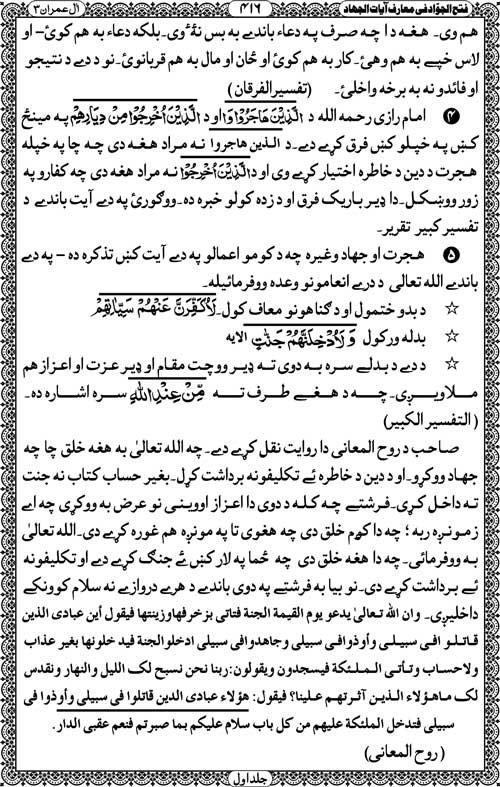 فتح الجوّاد فی معارف آیات الجهاد ۴۱۶ اٰل عمران ۳
هم وی۔ هغه دا چه صرف په دعاء باندے به بس نهٔ وی۔ بلکه دعاء به هم کوئ۔ او
لاس خپے به هم وهئ۔ کار به هم کوئ او ځان او مال به هم قربانوئ۔ نو د دے د نتیجو
او فائدو نه به برخه واخلئ۔ (تفسیر الفرقان)
۴ امام رازی رحمه الله د الَّذِيْنَ هَاجَرُوْا وَ او د الَّذِيْنَ اُخْرِجُوْا مِنْ دِيَارِهِمْ په مینځ
کښ په خپلو کښ فرق کړے دے۔ د الذین هاجروا نه مراد هغه دی چه چا په خپله
هجرت د دین د خاطره اختیار کړے وی او د الَّذِيْنَ اُخْرِجُوْا نه مراد هغه دی چه کفارو په
زور وویښکل۔ دا ډیر باریک فرق او د زده کولو خبره ده۔ ووګورئ په دے آیت باندے د
تفسیر کبیر تقریر۔
۵ هجرت او جهاد وغیره چه د کومو اعمالو په دے آیت کښ تذکره ده – په دے
باندے الله تعالی د درے انعامونو وعده وفرمائیله۔
☆ د بدو ختمول او د ګناهونو معاف کول۔ لَاُكَفِّرَنَّ عَنْهُمْ سَيِّاٰتِهِمْ
☆ بدله ورکول وَلَاُدْخِلَنَّهُمْ جَنّٰتٍ الایه
☆ د دے د بدلے سره به دوی ته ډیر ووچت مقام او ډیر عزت او اعزاز هم
ملاویږی۔ چه د هغے طرف ته مِّنْ عِنْدِ اللهِ سره اشاره ده۔
(التفسیر الکبیر)
صاحب د روح المعانی دا روایت نقل کړے دے۔ چه الله تعالیٰ به هغه خلق چا چه
جهاد ووکړو۔ او د دین د خاطره ئے تکلیفونه برداشت کړل۔ بغیر حساب کتاب نه جنت
ته داخل کړی۔ فرشتے چه کله د دوی دا اعزاز اووینی نو عرض به ووکړی چه اے
زمونږه ربه ؛ چه دا کوم خلق دی چه هغوی تا په مونږه هم غوره کړے دی۔ الله تعالیٰ
به ووفرمائی۔ چه دا هغه خلق دی چه ځما په لار کښ ئے جنګ کړے دے او تکلیفونه
ئے برداشت کړے دی۔ نو بیا به فرشتے په دوی باندے د هرے دروازے نه سلام کوونکے
داخلیږی۔ وان الله تعالیٰ یدعو یوم القیمة الجنة فتاتی بزخرفها وزینتها فیقول أین عبادی الذین
قاتلوا فی سبیلی وأوذوا فی سبیلی وجاهدوا فی سبیلی ادخلوا الجنة فید خلونها بغیر عذاب
ولا حساب وتأتی الملئکة فیسجدون ویقولون: ربنا نحن نسبح لک اللیل والنهار ونقدس
لک ما هؤلاء الذین آثرتهم علینا؟ فیقول: هؤلاء عبادی الذین قاتلوا فی سبیلی وأوذوا فی
سبیلی فتدخل الملئکة علیهم من کل باب سلام علیکم بما صبرتم فنعم عقبی الدار.
(روح المعانی)
جلد اول